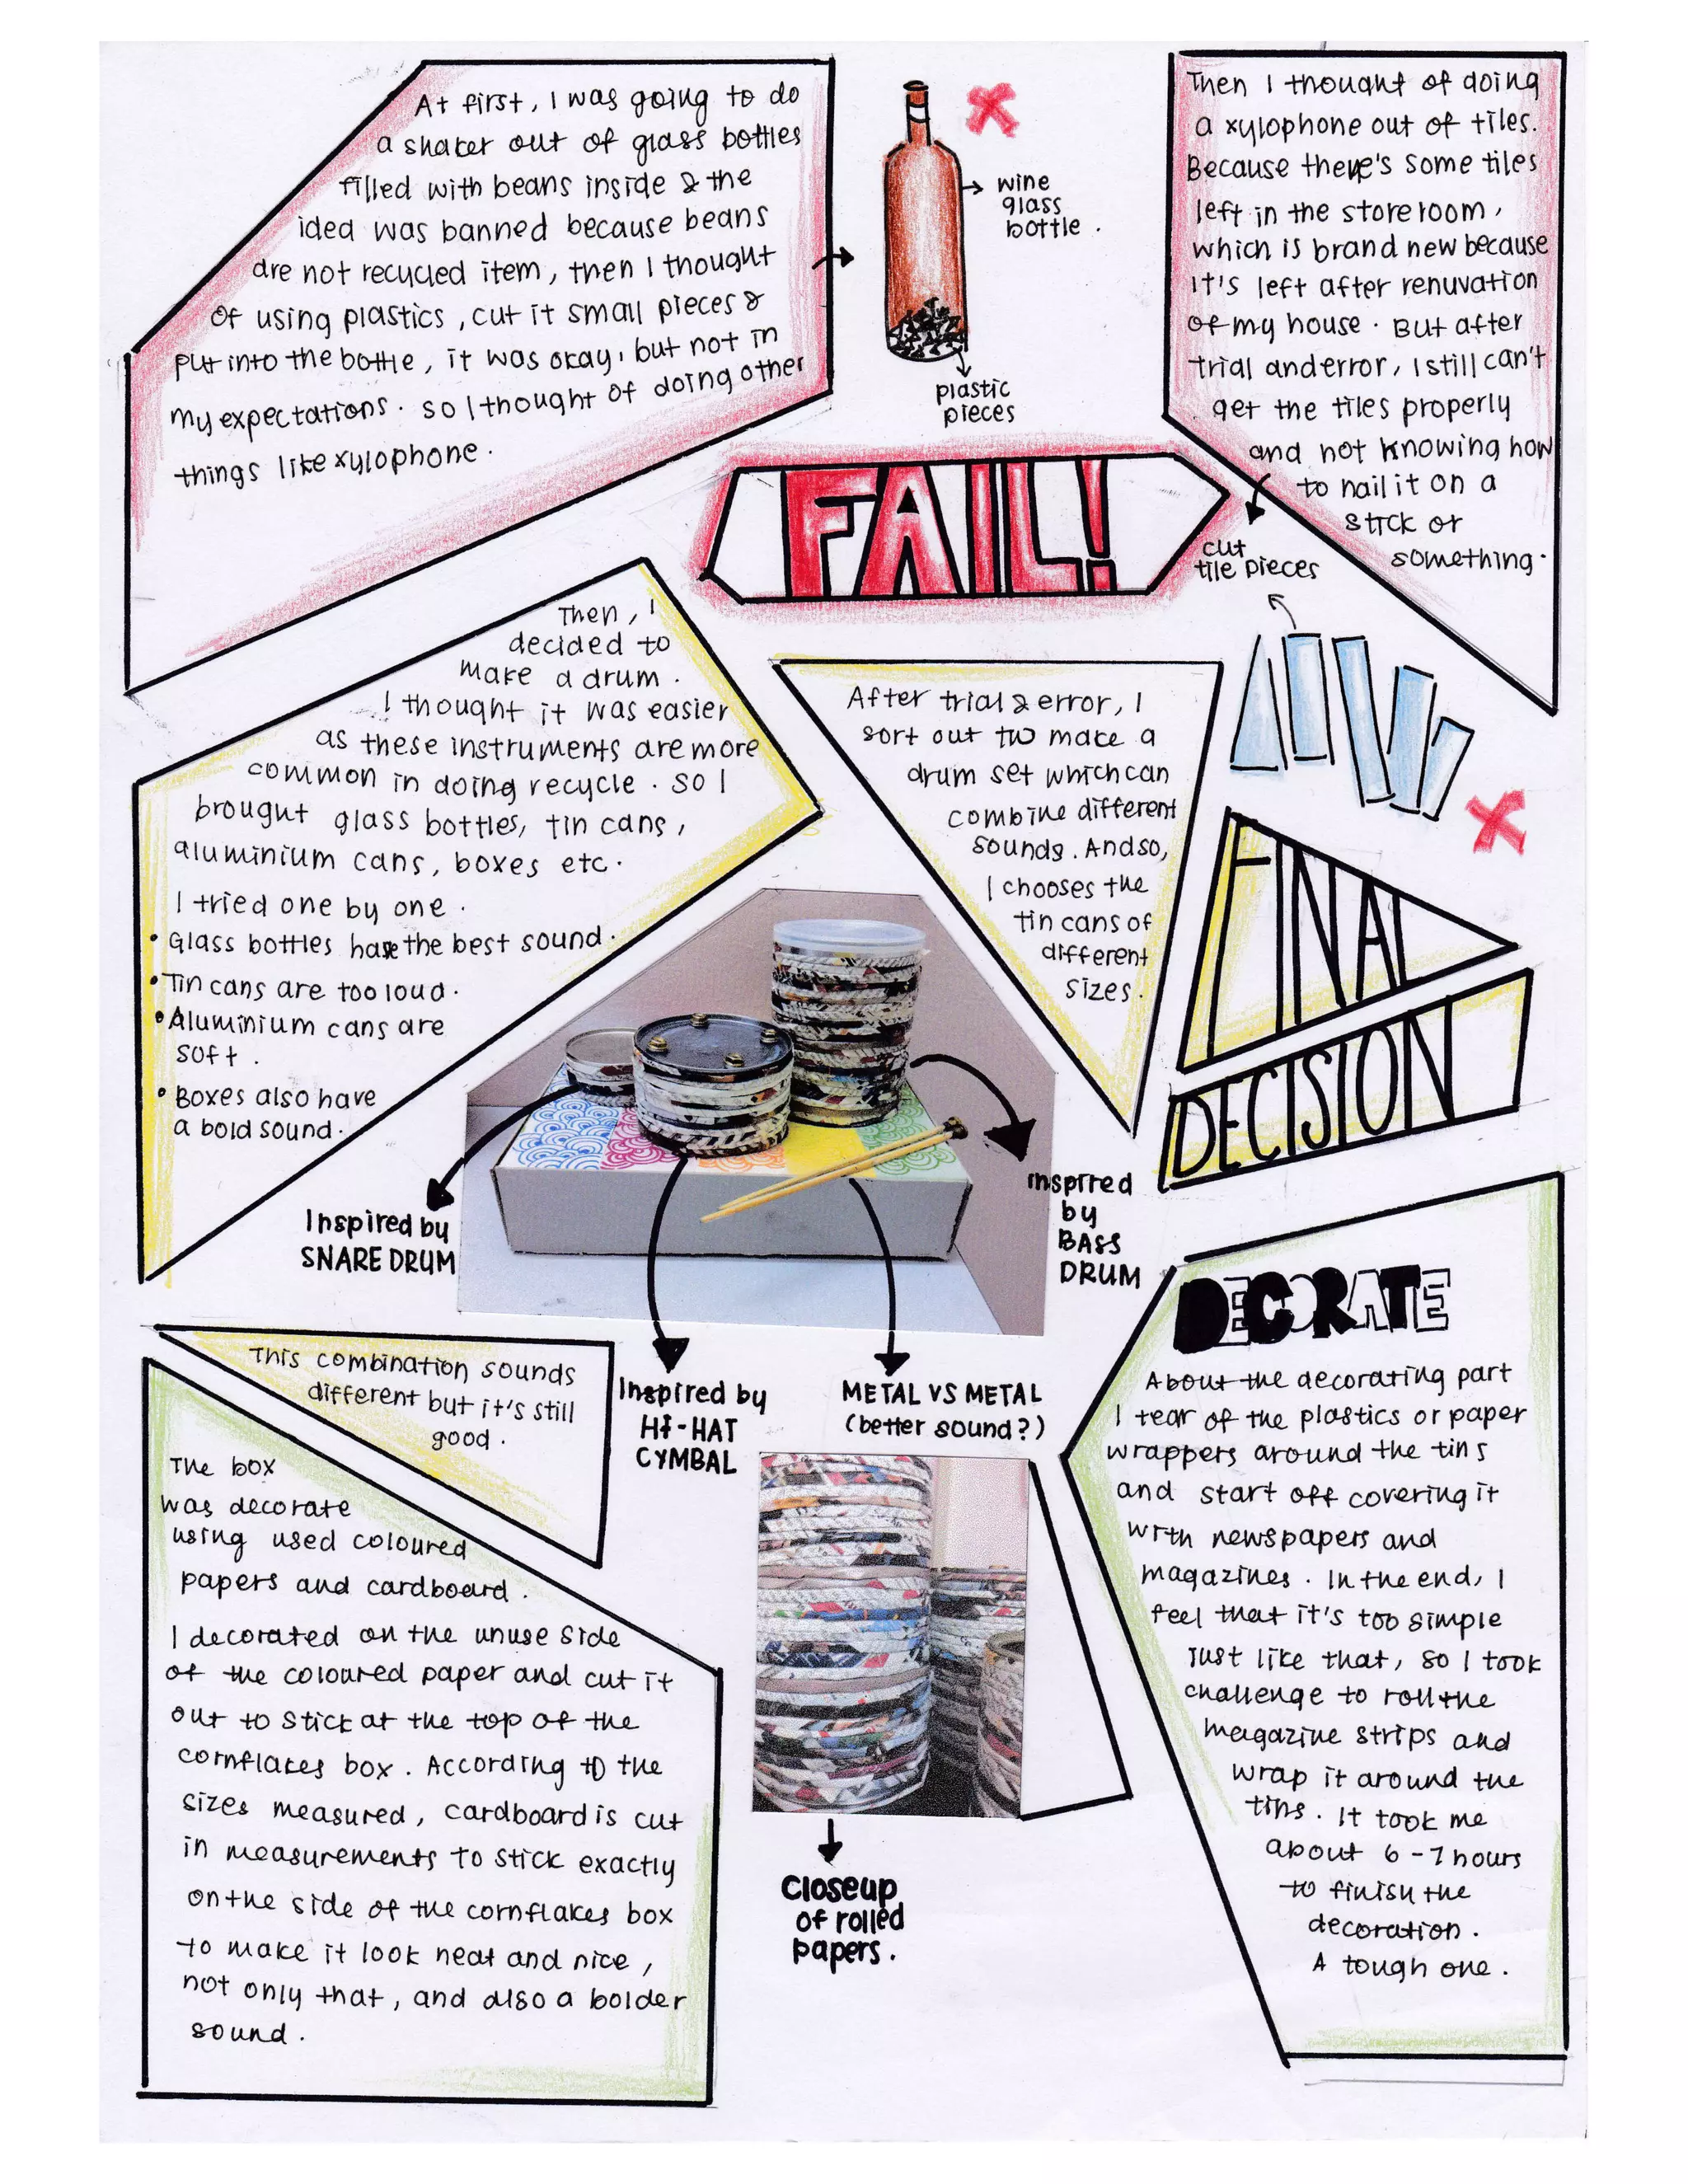 At first, I was going to do
a shaker out of glass bottles
filled with beans inside & the
idea was banned because beans
are not recycled item, then I thought
of using plastics, cut it small pieces &
put into the bottle, it was okay, but not in
my expectations. so I thought of doing other
things like xylophone.
wine
glass
bottle.
plastic
pieces
Then I thought of doing
a xylophone out of tiles.
Because there's some tiles
left in the storeroom,
which is brand new because
it's left after renuvation
of my house. But after
trial and error, I still can't
get the tiles properly
and not knowing how
to nail it on a
stick or
something.
FAIL!
cut
tile pieces
Then, I
decided to
make a drum.
I thought it was easier
as these instruments are more
common in doing recycle. so I
brought glass bottles, tin cans,
aluminium cans, boxes etc.
I tried one by one.
• Glass bottles have the best sound.
• Tin cans are too loud.
• Aluminium cans are
soft.
• Boxes also have
a bold sound.
After trial & error, I
sort out to make a
drum set which can
combine different
sounds. And so,
I chooses the
tin cans of
different
sizes.
FINAL
DECISION
Inspired by
SNARE DRUM
Inspired by
HI-HAT
CYMBAL
METAL VS METAL
(better sound?)
inspired
by
BASS
DRUM
This combination sounds
different but it's still
good.
The box
was decorate
using used coloured
papers and cardboard.
I decorated on the unuse side
of the coloured paper and cut it
out to stick at the top of the
cornflakes box. According to the
sizes measured, cardboard is cut
in measurements to stick exactly
on the side of the cornflakes box
to make it look neat and nice,
not only that, and also a bolder
sound.
closeup
of rolled
papers.
DECORATE
About the decorating part
I tear of the plastics or paper
wrappers around the tins
and start off covering it
with newspapers and
magazines. In the end, I
feel that it's too simple
just like that, so I took
challenge to roll the
magazine strips and
wrap it around the
tins. It took me
about 6-7 hours
to finish the
decoration.
A tough one.